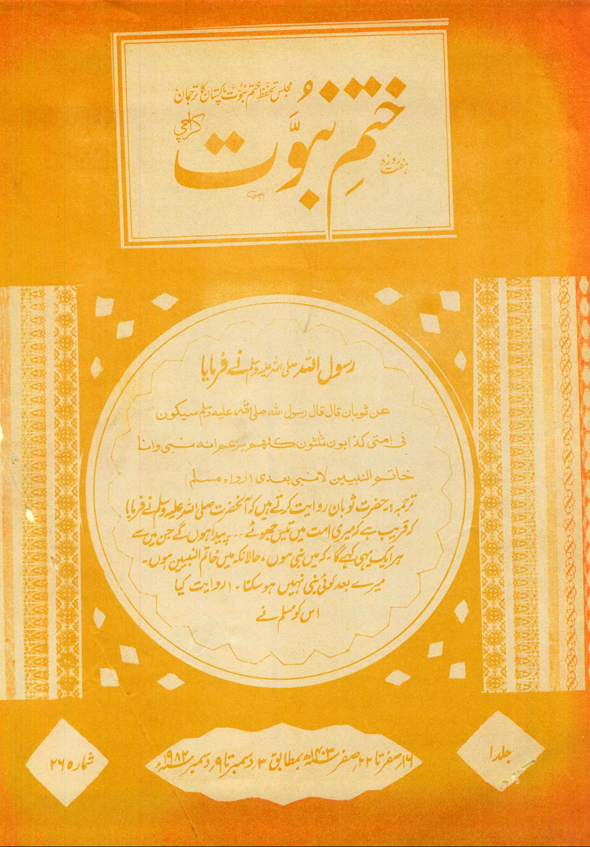 مجلس تحفظ ختم نبوت پاکستان کا ترجمان
ہفت روزہ
ختم نبوّت
کراچی
رسول اللہ صلی اللہ علیہ وسلم نے فرمایا
عن ثوبان قال قال رسول اللہ صلی اللہ علیہ وسلم سیکون
فی امتی کذابون ثلثون کلھم یزعم انہ نبی وانا
خاتم النبیین لا نبی بعدی (رواہ مسلم)
ترجمہ: حضرت ثوبان روایت کرتے ہیں کہ آنحضرت صلی اللہ علیہ وسلم نے فرمایا
کہ قریب ہے کہ میری امت میں تیس جھوٹے ... پیدا ہوں گے جن میں سے
ہر ایک یہی کہے گا ۔ کہ میں نبی ہوں ، حالانکہ میں خاتم النبیین ہوں ۔
میرے بعد کوئی نبی نہیں ہو سکتا ۔ (روایت کیا
اس کو مسلم نے
جلد ۱
۱۶ صفر تا ۲۲ صفر ۱۴۰۳ھ بمطابق ۳ دسمبر تا ۹ دسمبر ۱۹۸۲ء
شمارہ ۲۶